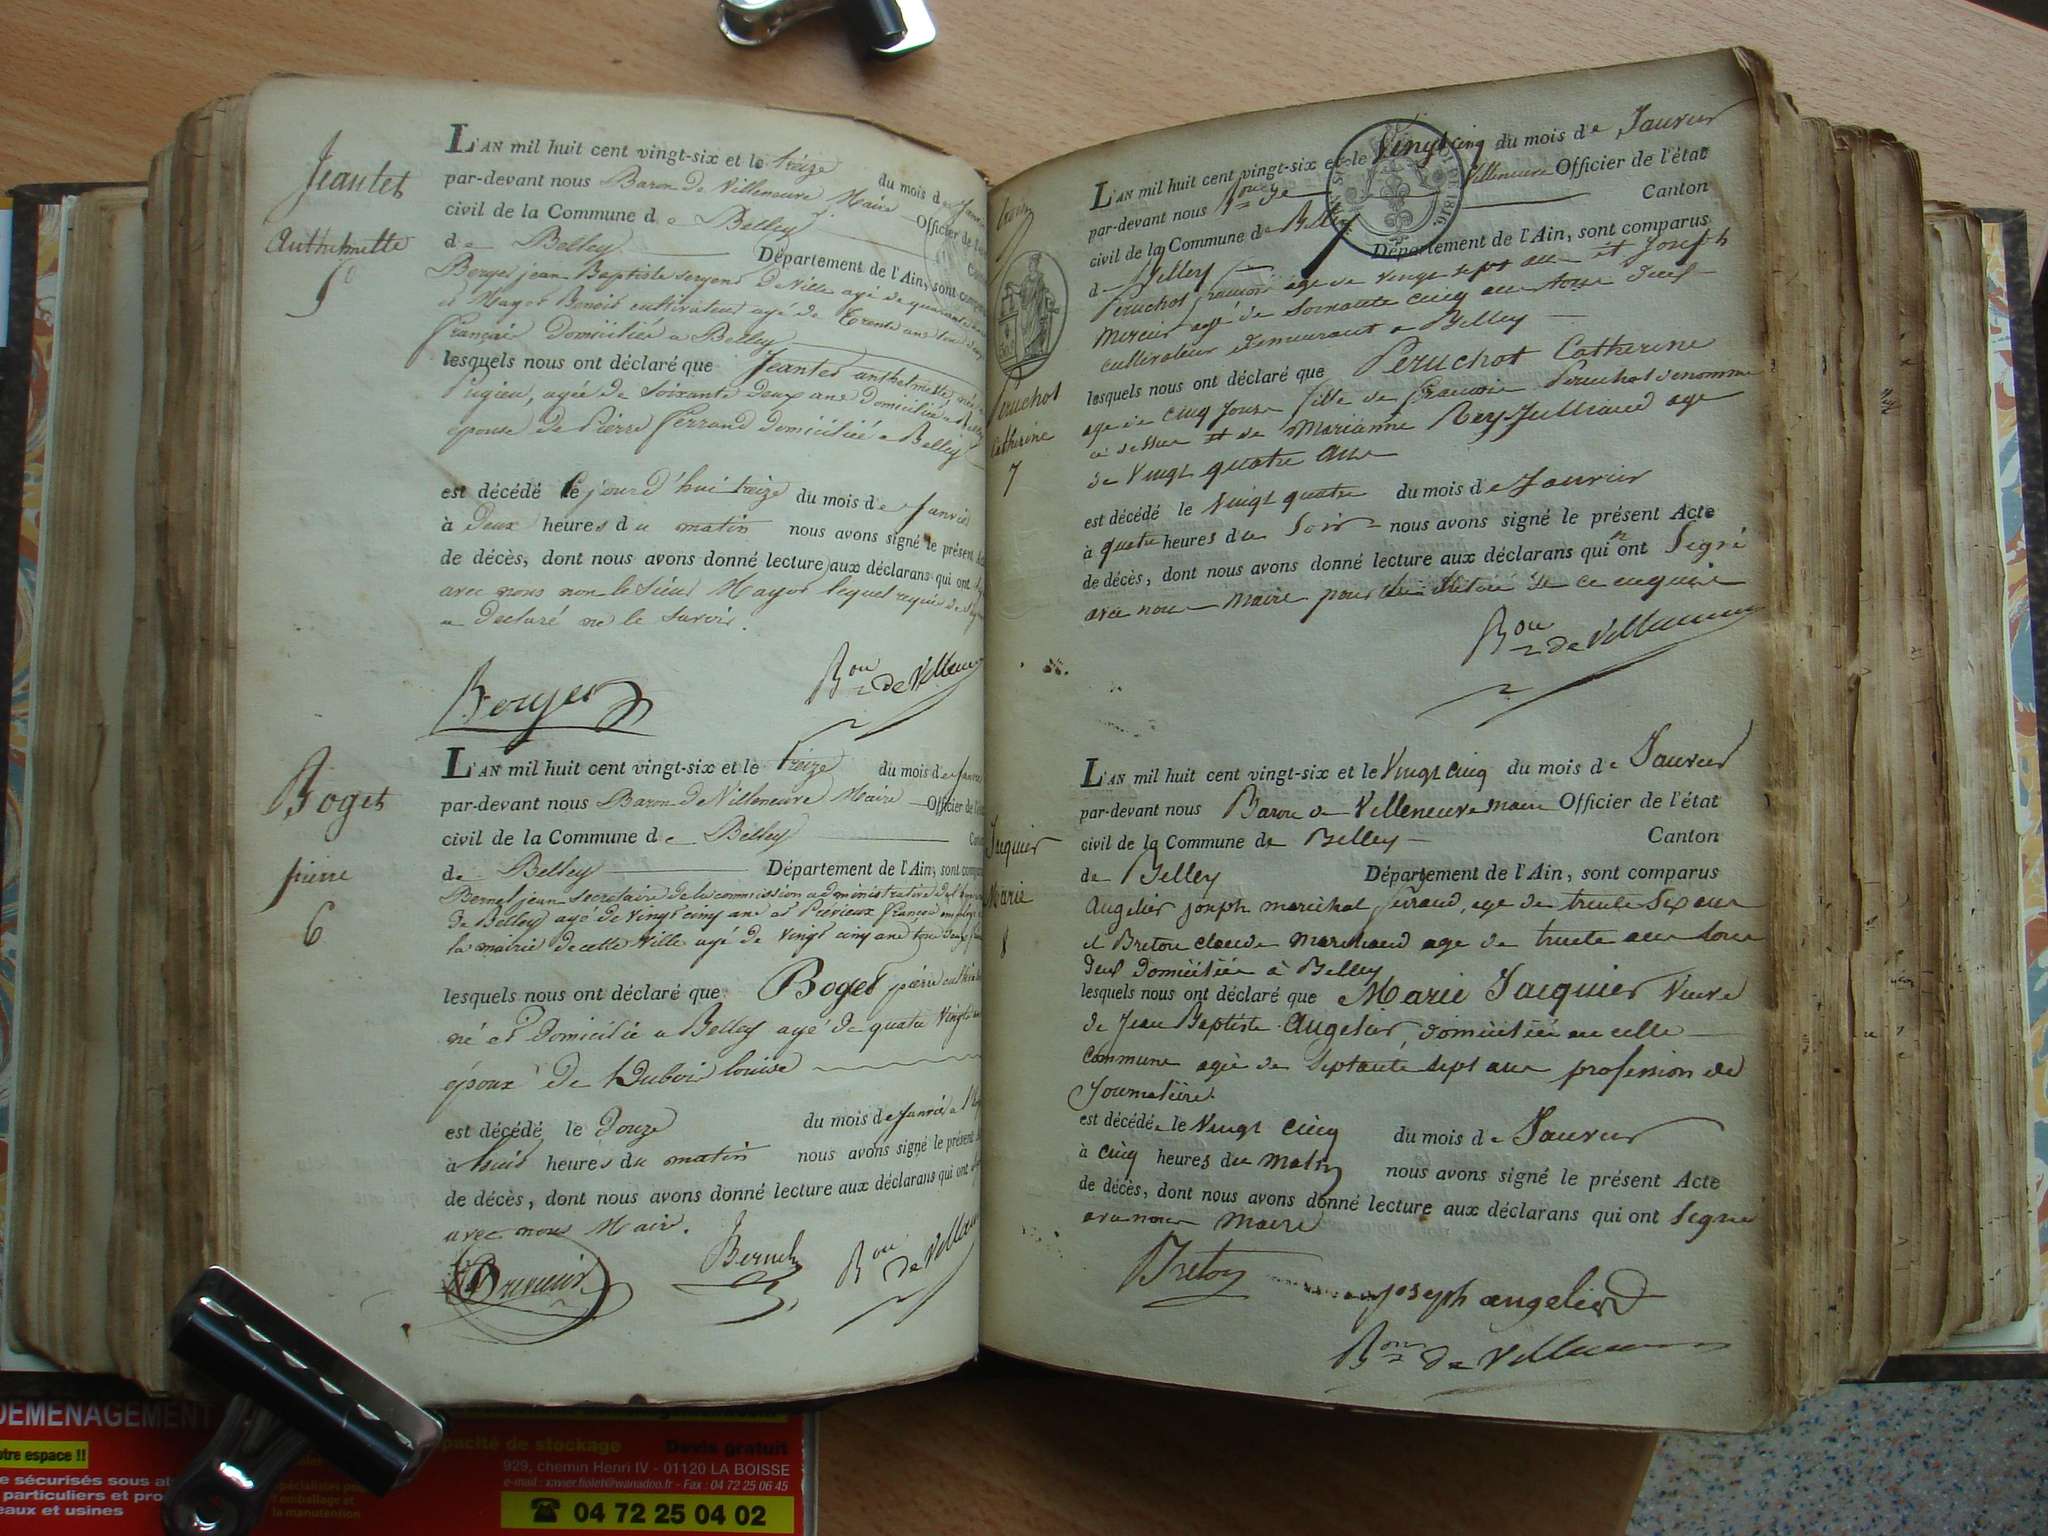 Jeantet
Anthelmette
5
L'AN mil huit cent vingt-six et le treize du mois de
par-devant nous Baron De Villeneuve Maire Officier de
civil de la Commune d e Belley
d e Belley Département de l'Ain, sont
Berger jean Baptiste sergent De Ville agé de quarante
et Mayot Benoit cultivateur agé de Trente ans tous
français Domicilié a Belley
lesquels nous ont déclaré que Jeantet anthelmette
Pugieu, agée de Soixante Deux ans Domiciliée a
épouse De Pierre Ferrand Domiciliée a Belley
est décédé le jour d'hui treize du mois de Janvier
à Deux heures du matin nous avons signé le présent
de décès, dont nous avons donné lecture aux déclarans qui ont
avec nous non le Sieur Mayot lequel requis de
a Declaré ne le Savoir.
Berger Bon de Villeneuve
Boget
pierre
6
L'AN mil huit cent vingt-six et le Treize du mois de
par-devant nous Baron De Villeneuve Maire Officier de
civil de la Commune d e Belley
de Belley Département de l'Ain, sont
Bernet jean Secretaire de la commission administrative
De Belley agé de vingt cinq ans et françois
la mairie de cette Ville agé de vingt cinq ans tous Deux
lesquels nous ont déclaré que Boget pierre
né et Domicilié a Belley agé de quatre Vingt
époux De Dubois louise
est décédé le Douze du mois de Janvier a
à huit heures du matin nous avons signé le présent
de décès, dont nous avons donné lecture aux déclarans qui ont
avec nous Maire.
Bernet Bon de Villeneuve
Peruchot
Catherine
7
L'AN mil huit cent vingt-six et le Vingt cinq du mois de Janvier
par-devant nous Bon de Villeneuve Officier de l'état
civil de la Commune de Belley Canton
d e Belley Département de l'Ain, sont comparus
Peruchot francois age de vingt sept ans et Joseph
Mercier age de Soixante cinq ans tous deux
cultivateur demeurant a Belley
lesquels nous ont déclaré que Peruchot Catherine
age de cinq jours fille de francois Peruchot denomme
ci dessus et de Marianne Rey Julliand age
de vingt quatre ans
est décédé le vingt quatre du mois de Janvier
à quatre heures du Soir nous avons signé le présent Acte
de décès, dont nous avons donné lecture aux déclarans qui n'ont Signé
avec nous Maire pour être illitéré de ce enquis
Bon de Villeneuve
Jacquier
Marie
8
L'AN mil huit cent vingt-six et le Vingt cinq du mois de Janvier
par-devant nous Baron de Villeneuve maire Officier de l'état
civil de la Commune de Belley Canton
de Belley Département de l'Ain, sont comparus
Angelier joseph marechal ferrand, age de trente Six ans
et Breton claude marchand age de trente ans tous
deux domiciliés à Belley
lesquels nous ont déclaré que Marie Jacquier Veuve
de Jean Baptiste Angelier, domiciliée en cette
commune agée de Septante sept ans profession de
Journaliere
est décédée le Vingt cinq du mois de Janvier
à cinq heures du Matin nous avons signé le présent Acte
de décès, dont nous avons donné lecture aux déclarans qui ont Signé
avec nous Maire
Breton joseph angelier
Bon de Villeneuve
DEMENAGEMENT
otre espace !!
e sécurisés sous
particuliers et pro
eaux et usines
spécialistes
l'emballage et
la manutention
pacité de stockage Devis gratuit
929, chemin Henri IV - 01120 LA BOISSE
e-mail : xavier.fiolet@wanadoo.fr - Fax : 04 72 25 06 45
☎ 04 72 25 04 02